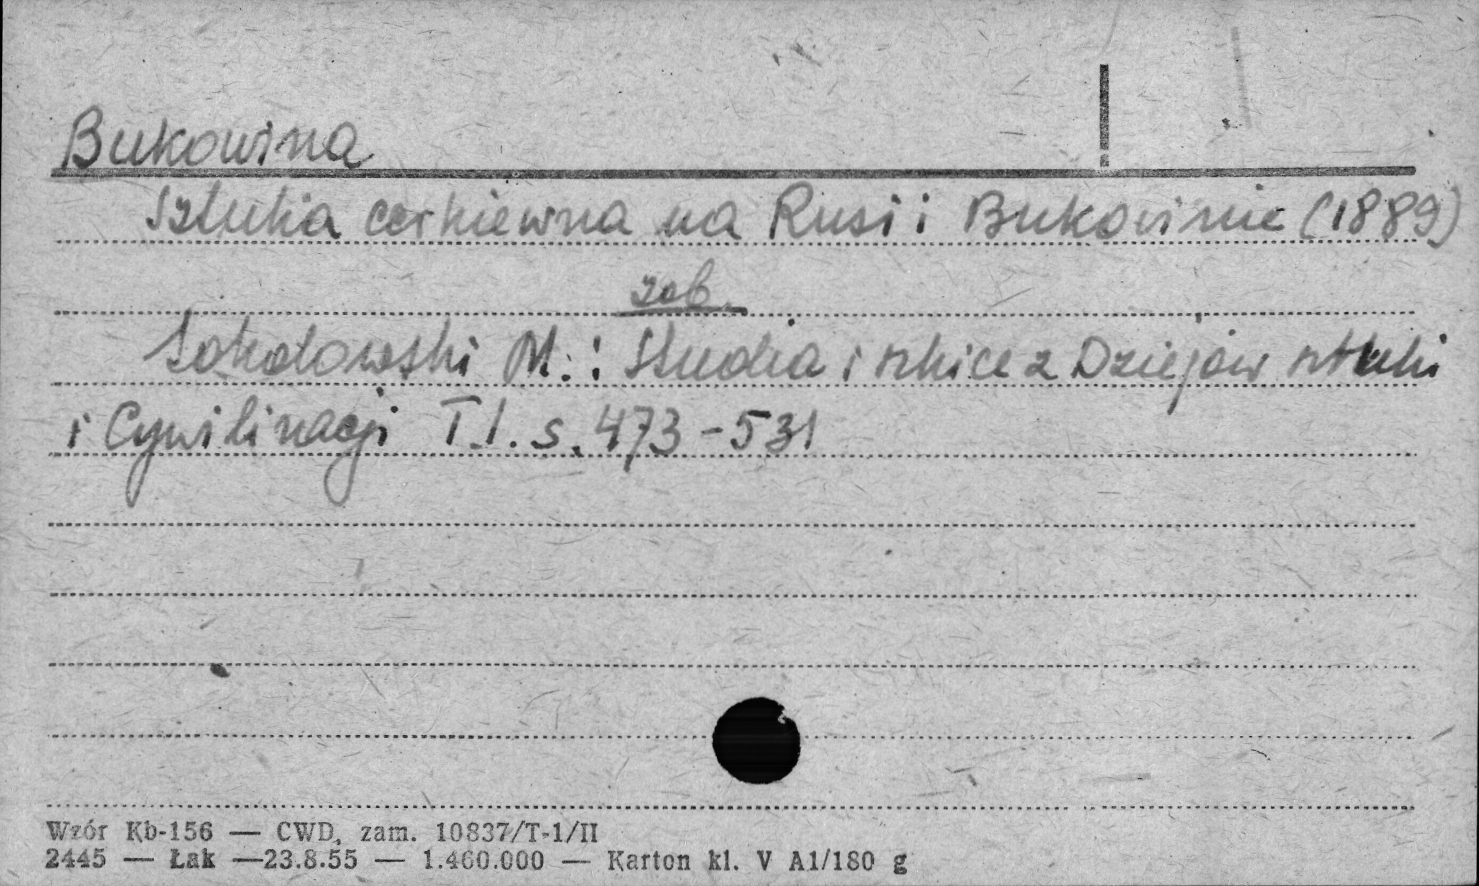 Bukowina
Sztuka cerkiewna na Rusi i Bukowinie (1889)
zob.
Sokołowski M.: Studia i szkice z Dziejów sztuki
i Cywilizacji T.I. s. 473-531
Wzór Kb-156 — CWD, zam. 10837/T-1/II
2445 — Łak —23.8.55 — 1.460.000 — Karton kl. V A1/180 g